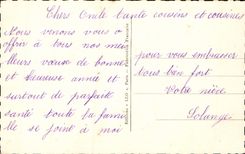 Chers Oncle Tante cousins et cousines
Nous venons vous
offrir à tous nos meil
leurs vœux de bonne
et heureuse année et
surtout de parfaite
santé toute la famil
lle se joint à moi
pour vous embrasser
tous bien fort
Votre nièce
Solange